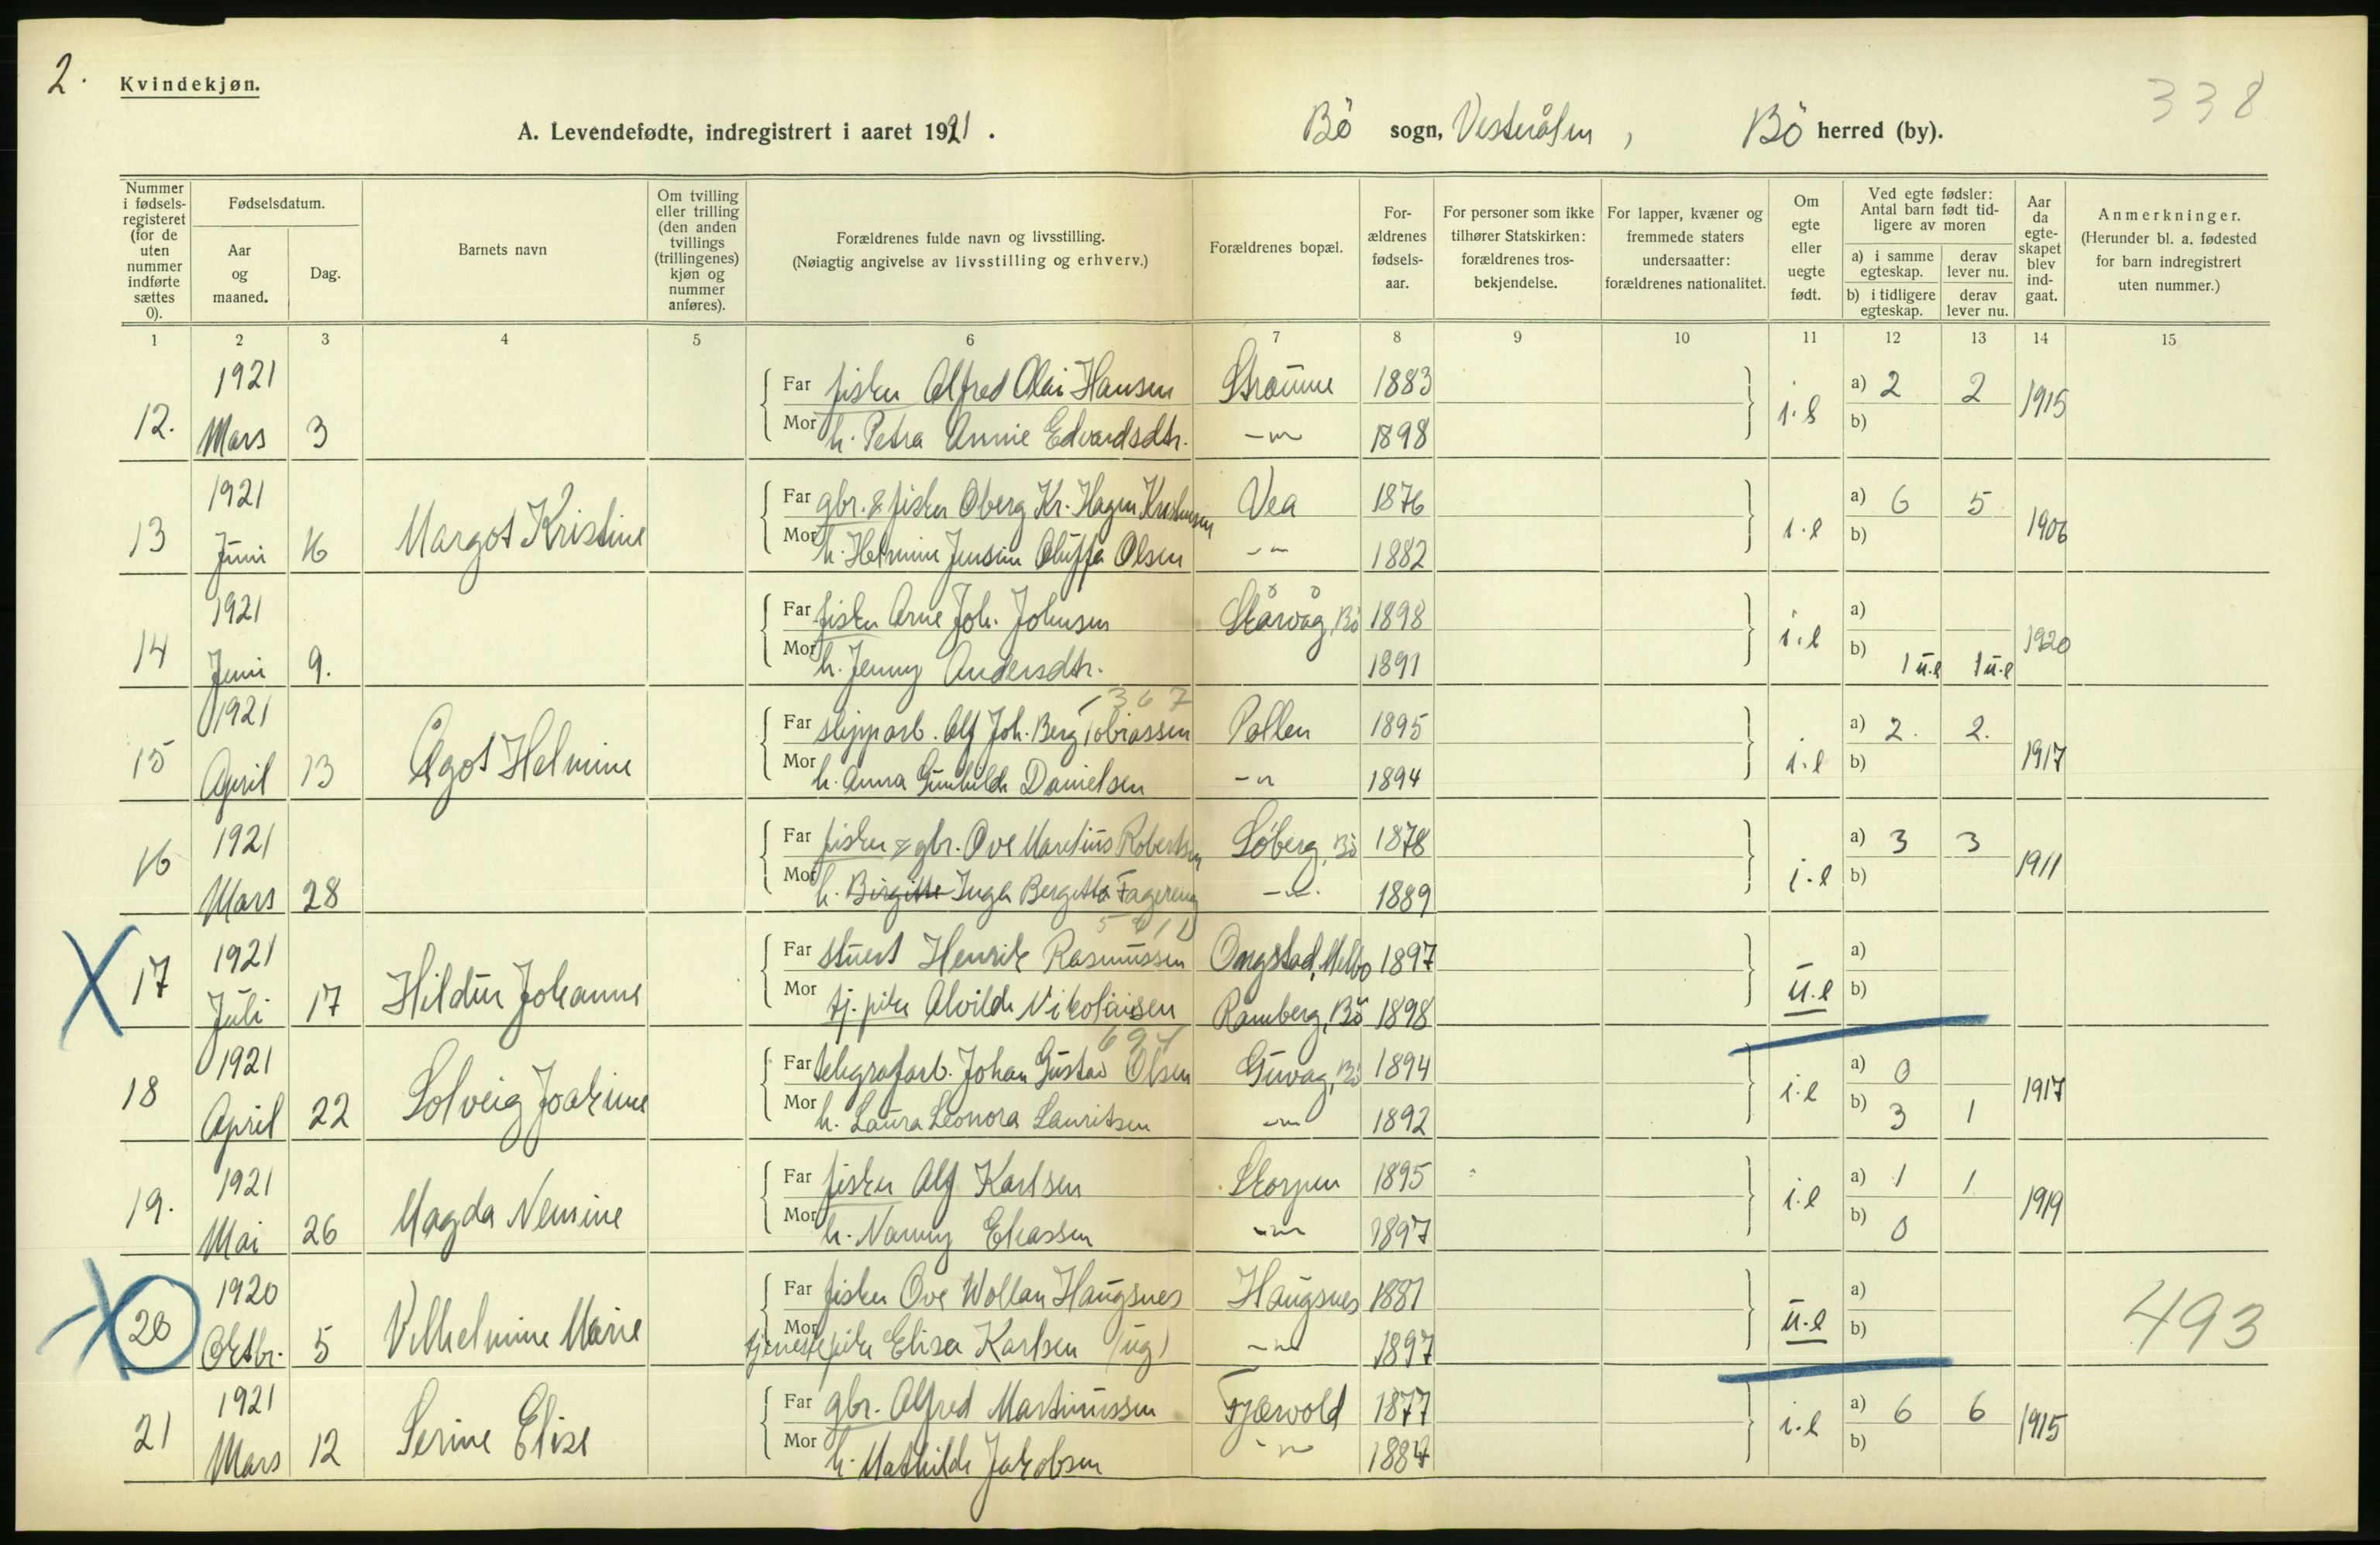 2.
Kvindekjøn.
338
A. Levendefødte, indregistrert i aaret 1921.
Bö sogn, Vesterålen, Bö herred (by).
Nummer i fødselsregisteret (for de uten nummer indførte sættes 0).
Fødselsdatum.
Aar og maaned.
Dag.
Barnets navn
Om tvilling eller trilling (den anden tvillings (trillingenes) kjøn og nummer anføres).
Forældrenes fulde navn og livsstilling.
(Nøiagtig angivelse av livsstilling og erhverv.)
Forældrenes bopæl.
Forældrenes fødselsaar.
For personer som ikke tilhører Statskirken: forældrenes trosbekjendelse.
For lapper, kvæner og fremmede staters undersaatter: forældrenes nationalitet.
Om egte eller uegte født.
Ved egte fødsler: Antal barn født tidligere av moren
a) i samme egteskap.
derav lever nu.
b) i tidligere egteskap.
derav lever nu.
Aar da egteskapet blev indgaat.
Anmerkninger.
(Herunder bl. a. fødested for barn indregistrert uten nummer.)
1 2 3 4 5 6 7 8 9 10 11 12 13 14 15
12. 1921 Mars 3
Far fisker Alfred Olai Hansen Straume 1883
Mor h. Petra Annie Edvardsdtr. -"- 1898
i.e a) 2 2 b) 1915
13 1921 Juni 16 Margot Kristine
Far gbr. & fisker Oberg Kr. Hagen Kristensen Vea 1876
Mor h. Helmine Jensine Oluffa Olsen -"- 1882
i.e a) 6 5 b) 1906
14 1921 Juni 9.
Far fisker Arne Joh. Johnsen Skårvåg, Bö 1898
Mor h. Jenny Andersdtr. 1891
i.e a) b) 1 u.e 1 u.e 1920
1367
15 1921 April 13 Ågot Helmine
Far slipparb. Alf Joh. Berg Tobiassen Pollen 1895
Mor h. Anna Gunhilde Danielsen -"- 1894
i.e a) 2. 2. b) 1917
16 1921 Mars 28
Far fisker & gbr. Ove Maretius Robertsen Söberg, Bö 1878
Mor h. Birgitte Inga Bergitta Fagereng -"- 1889
i.e a) 3 3 b) 1911
17 1921 Juli 17 Hildur Johanne
Far stuert Henrik Rasmussen Ongstad, Melbo 1897
Mor tj. pike Alvilde Nikolaisen Ramberg, Bö 1898
u.e a) b)
697
18 1921 April 22 Solveig Joakime
Far telegrafarb. Johan Gustav Olsen Guvåg, Bö 1894
Mor h. Laura Leonora Lauritsen -"- 1892
i.e a) 0 b) 3 1 1917
19. 1921 Mai 26 Magda Nensine
Far fisker Alf Karlsen Skorpen 1895
Mor h. Nanny Eliassen -"- 1897
i.e a) 1 1 b) 0 1919
20 1920 Oktbr. 5 Vilhelmine Marie
Far fisker Ove Wollan Haugsnes Haugsnes 1881
Mor tjenestepike Elisa Karlsen (ug) -"- 1897
u.e a) b) 493
21 1921 Mars 12 Serine Elise
Far gbr. Alfred Martinussen Fjærvold 1877
Mor h. Mathilde Jakobsen -"- 1884
i.e a) 6 6 b) 1915